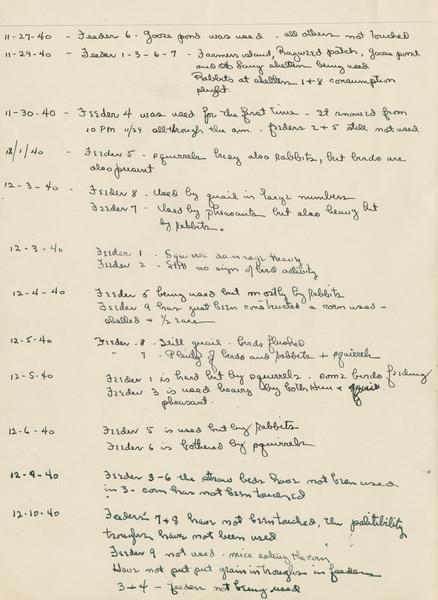 11-27-40 - Feeder 6 - Goose pond was used - all others not touched
11-29-40 - Feeder 1-3-6-7 - Farmers island, Ragweed patch, Goose pond
and Old Gang shelters being used
Rabbits at shelters 1+8 consumption
slight.
11-30-40 - Feeder 4 was used for the first time - It snowed from
10 PM 11/29 all through the am. - feeders 2+5 still not used
12/1/40 - Feeder 5 - squirrels busy also rabbits, but birds are
also present
12-3-40 - Feeder 8 - Used by quail in large numbers
Feeder 7 - Used by pheasants but also heavy hit
by rabbits.
12-3-40 Feeder 1 - Squirrel damage heavy
Feeder 2 - Still no sign of bird activity
12-4-40 Feeder 5 being used but mostly by Rabbits
Feeder 9 has just been constructed a corn used -
shelled + 1/2 ears
12-5-40 Feeder 8 - Still quail - birds flushed
" 7 - Plenty of birds and rabbits + squirrels
12-5-40 Feeder 1 is hard hit by squirrels - some birds feeding
Feeder 3 is used heavy by both Hun + quail
pheasant.
12-6-40 Feeder 5 is used but by Rabbits
Feeder 6 is bothered by squirrels
12-9-40 Feeder 3-6 the straw beds have not been used
in 3 - corn has not been touched
12-10-40 Feeders 7+8 have not been touched, the palitibility
troughs have not been used
Feeder 9 not used - mice eating the corn
Have not put put grain in troughs in feeders
3+4 - feeders not being used